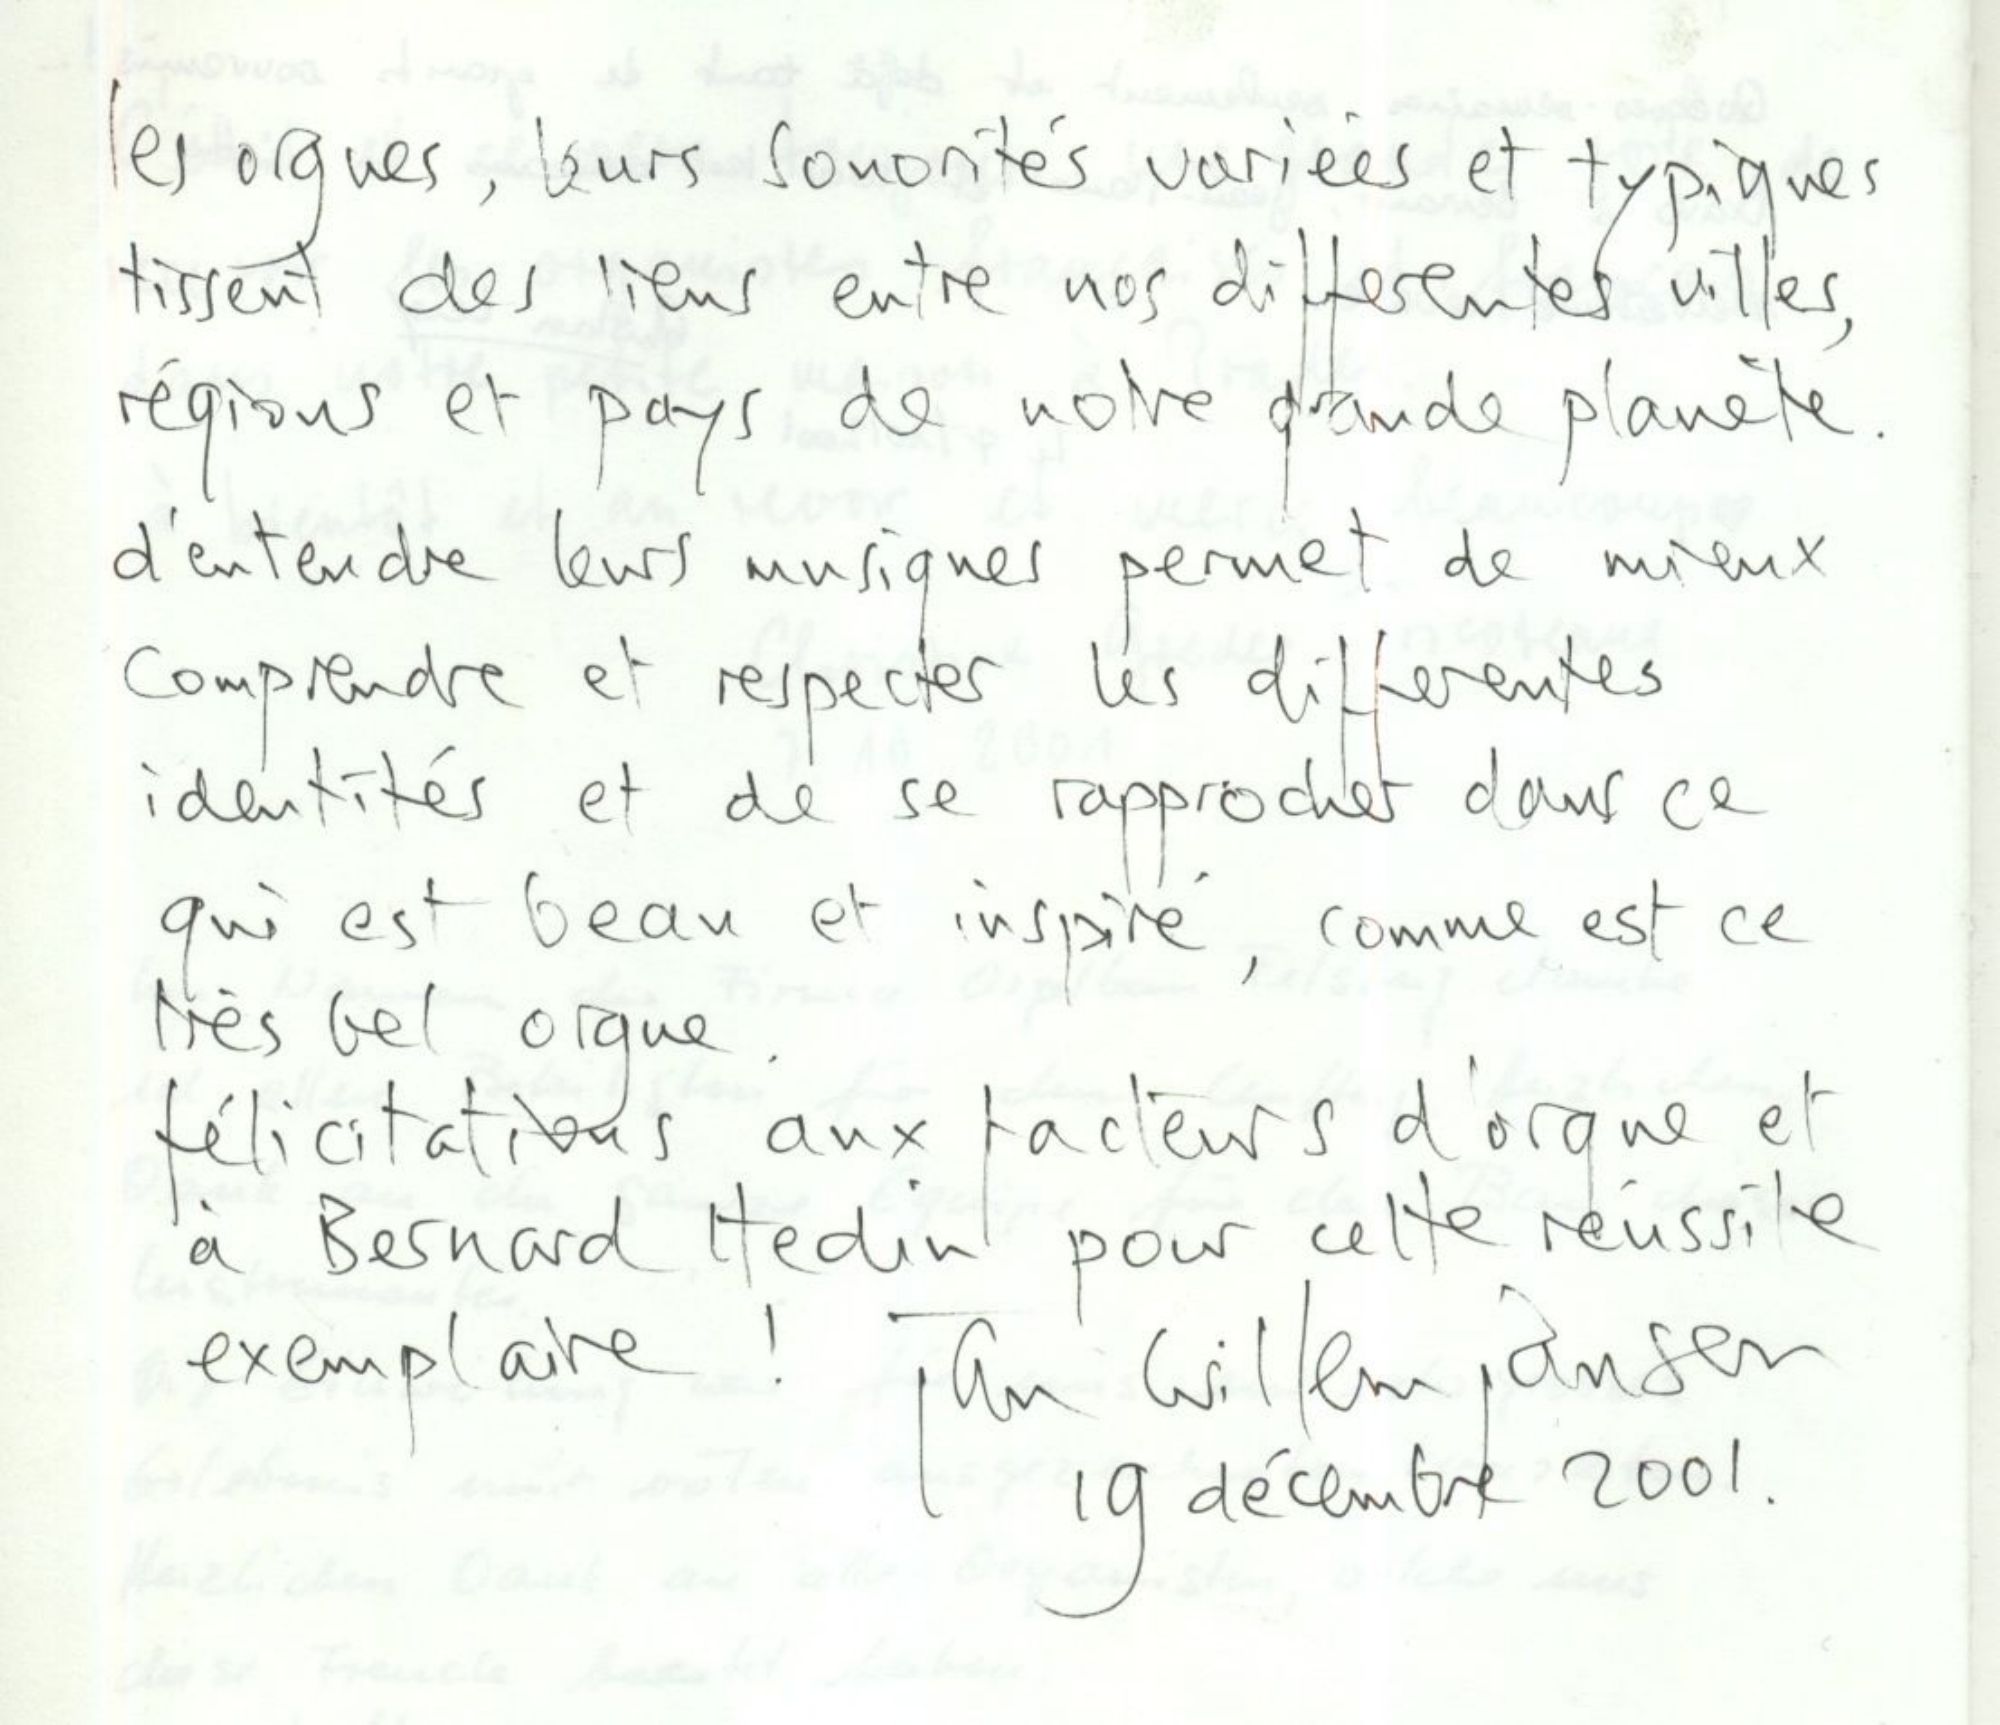 les orgues, leurs sonorités variées et typiques
tissent des liens entre nos différentes villes,
régions et pays de notre grande planète.
d'entendre leurs musiques permet de mieux
comprendre et respecter les différentes
identités et de se rapprocher dans ce
qui est beau et inspiré, comme est ce
très bel orgue.
félicitations aux facteurs d'orgue et
à Bernard Hedin pour cette réussite
exemplaire ! Jan Willem Jansen
19 décembre 2001.